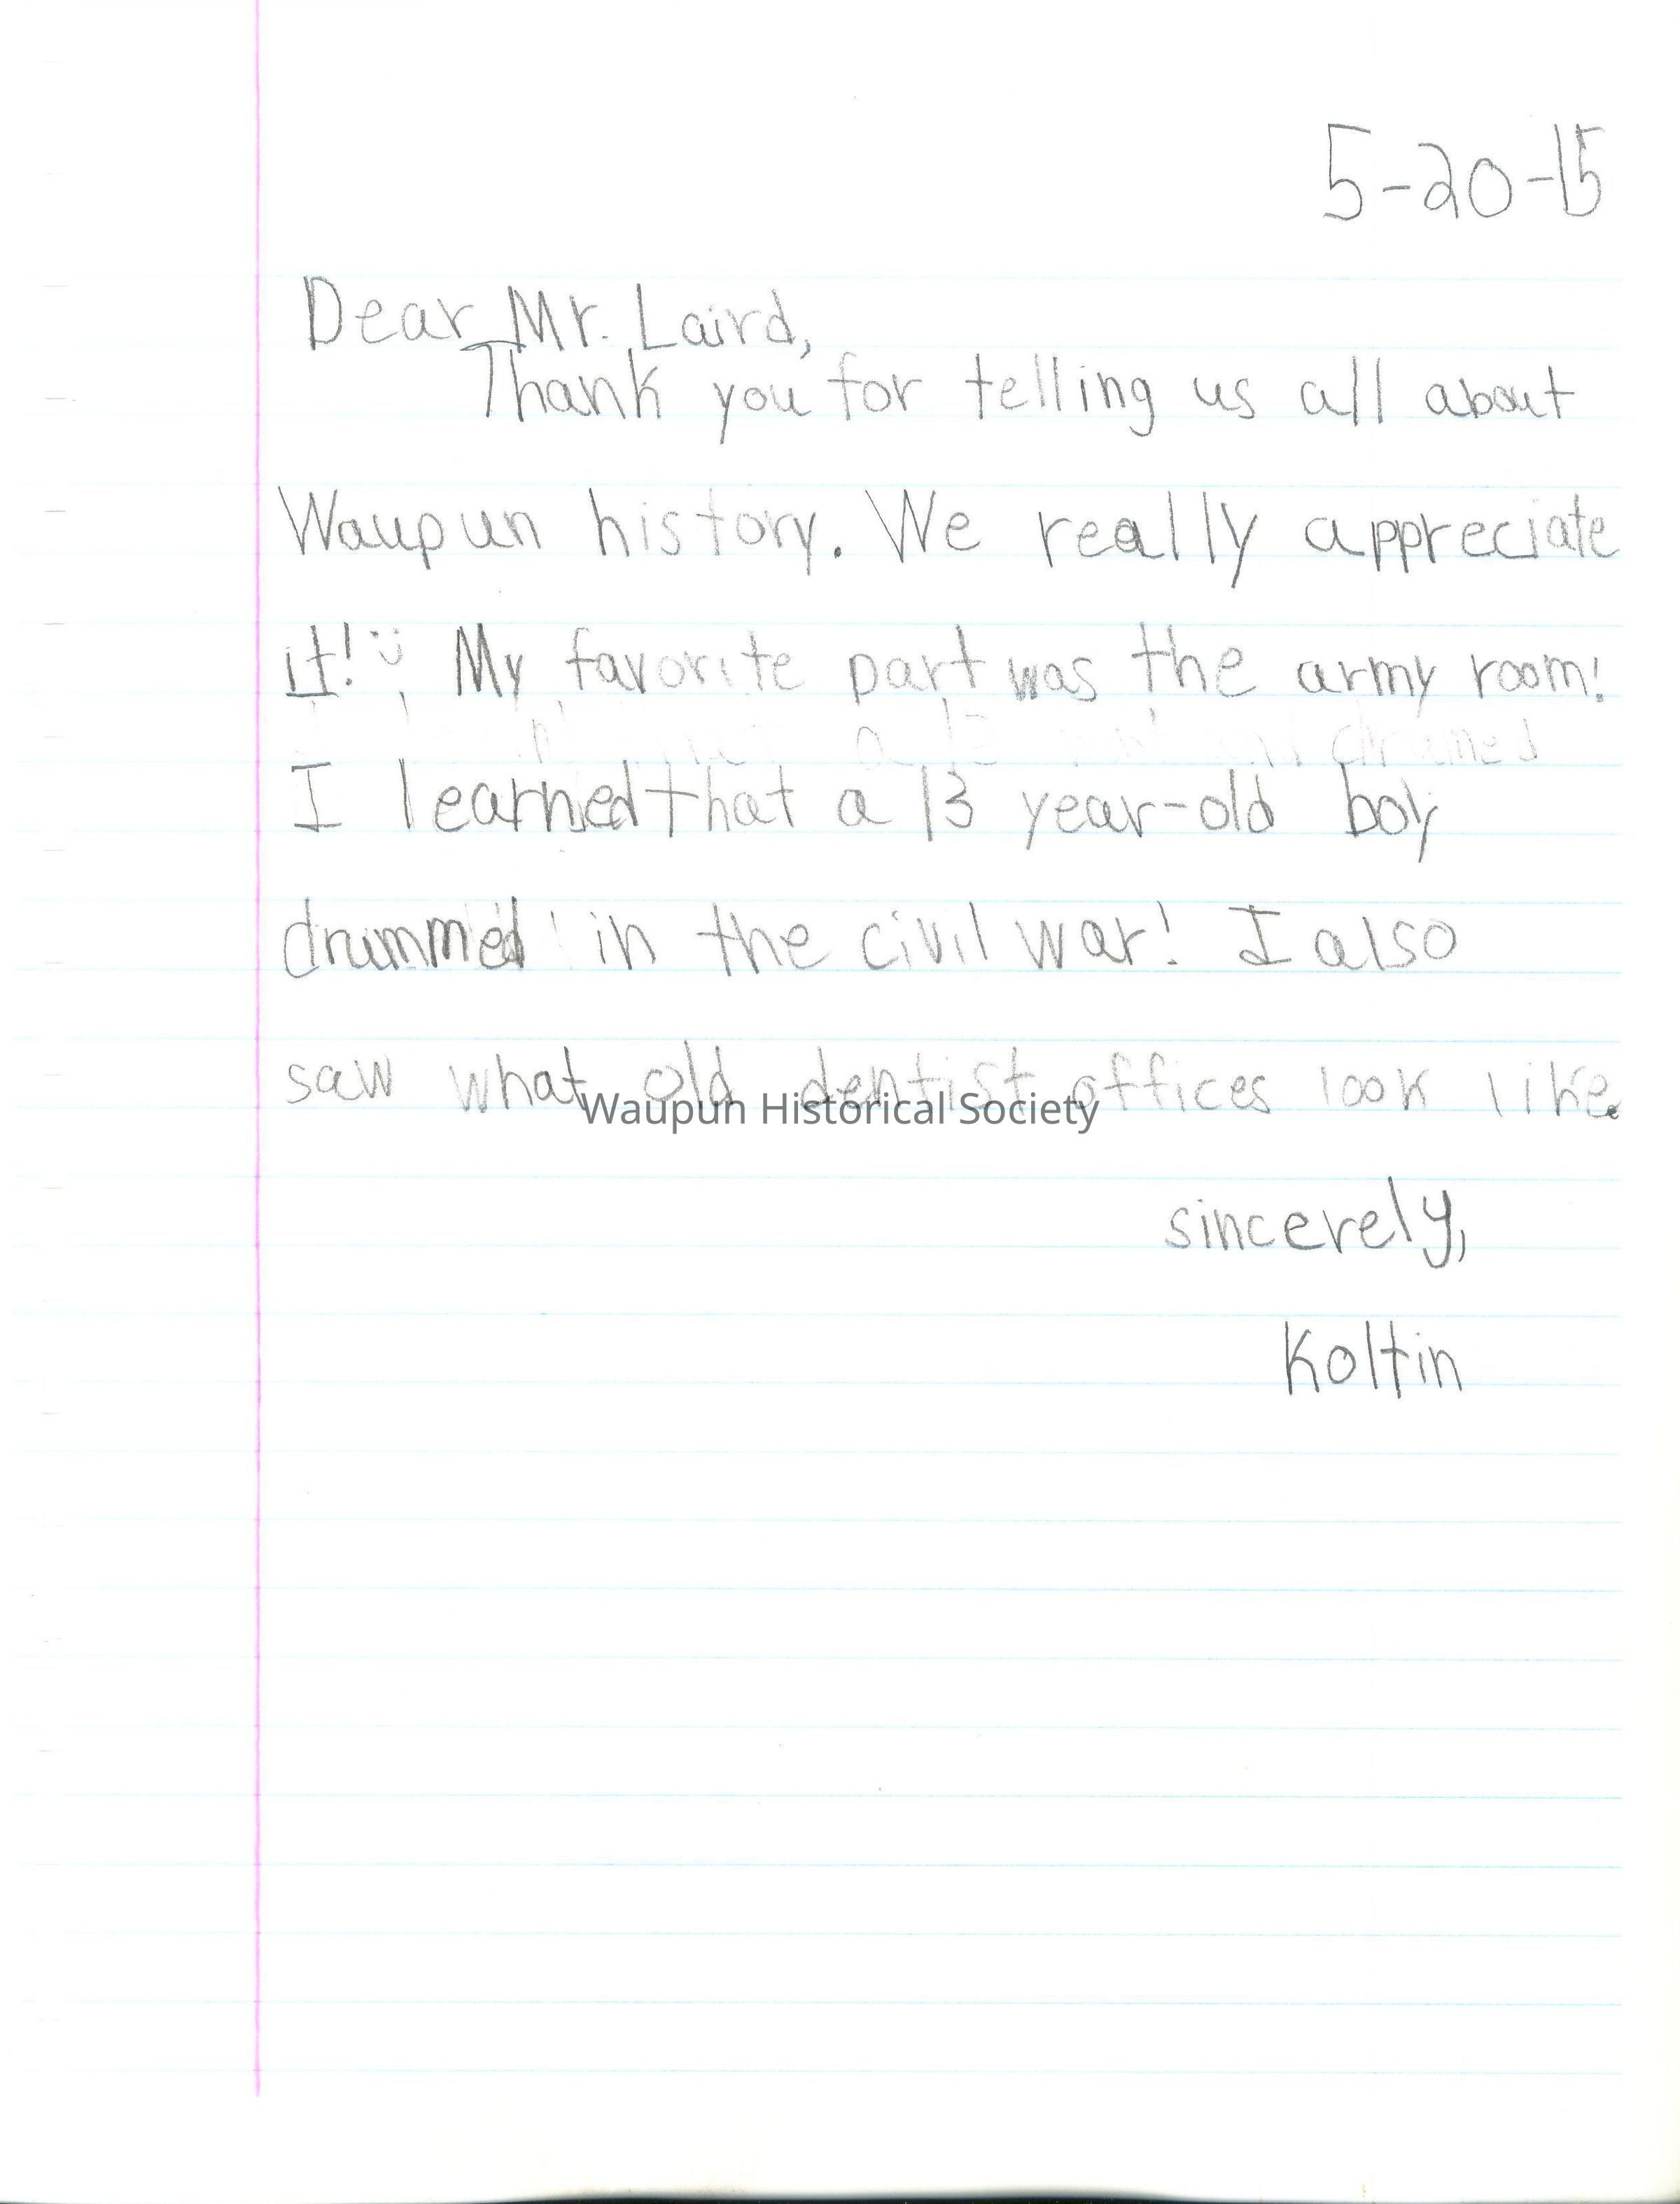 5-20-15
Dear Mr. Laird,
Thank you for telling us all about
Waupun history. We really appreciate
it! My favorite part was the army room!
I learned that a 13 year-old boy
drummed in the civil war! I also
saw what old dentist offices look like.
Waupun Historical Society
sincerely,
Koltin